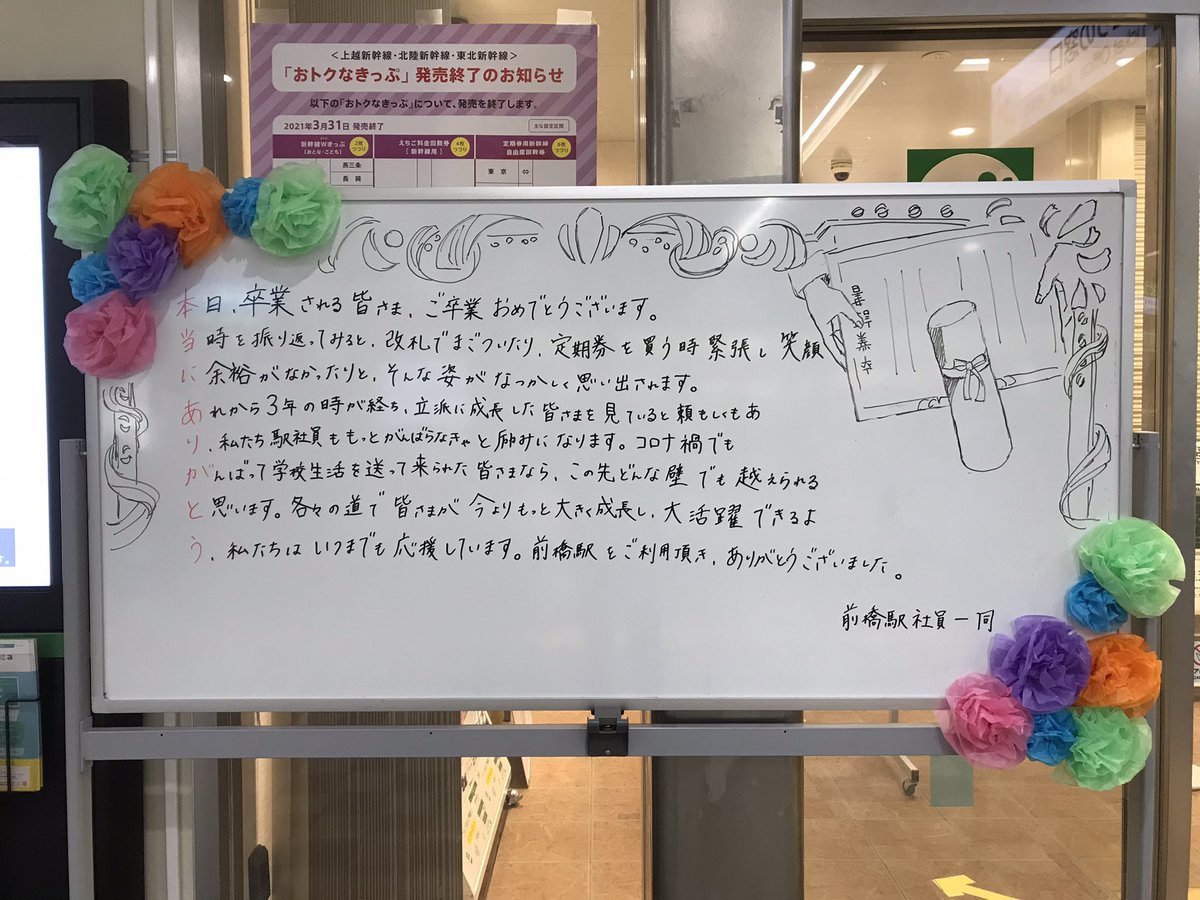 <上越新幹線・北陸新幹線・東北新幹線>
「おトクなきっぷ」発売終了のお知らせ
以下の「おトクなきっぷ」について、発売を終了します。
2021年3月31日 発売終了
主な設定区間
新幹線Wきっぷ
(おとな・こども)
2枚つづり
えちご料金回数券
[新幹線用]
4枚つづり
定期券用新幹線
自由席回数券
6枚つづり
燕三条
長岡
東京 ⇔
本日、卒業される皆さま、ご卒業おめでとうございます。
当時を振り返ってみると、改札でまごついたり、定期券を買う時緊張し笑顔
に余裕がなかったりと、そんな姿がなつかしく思い出されます。
あれから3年の時が経ち、立派に成長した皆さまを見ていると頼もしくもあ
り、私たち駅社員ももっとがんばらなきゃと励みになります。コロナ禍でも
がんばって学校生活を送って来られた皆さまなら、この先どんな壁でも越えられる
と思います。各々の道で皆さまが今よりもっと大きく成長し、大活躍できるよ
う、私たちはいつまでも応援しています。前橋駅をご利用頂き、ありがとうございました。
前橋駅社員一同